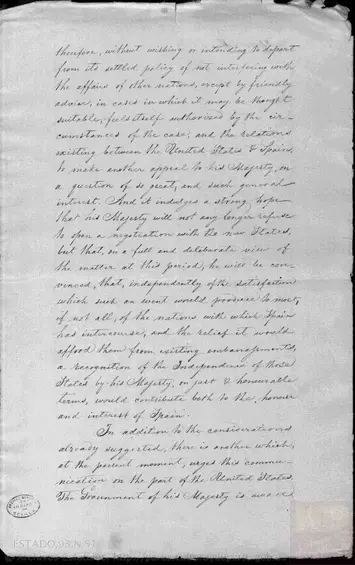 therefore, without wishing or intending to depart
from its settled policy of not interfering with
the affairs of other nations, except by friendly
advice, in cases in which it may be thought
suitable, feels itself authorised by the cir-
cumstances of the case, and the relations
existing between the United States & Spain,
to make another appeal to his Majesty, on
a question of so great, and such general
interest. And it indulges a strong hope
that his Majesty will not any longer refuse
to open a negotiation with the new States,
but that, on a full and deliberate view of
the matter at this period, he will be con-
vinced, that, independently of the satisfaction
which such an event would produce to most,
if not all, of the nations with which Spain
has intercourse, and the relief it would
afford them from existing embarrassments,
a recognition of the Independence of those
States by his Majesty, on just & honourable
terms, would contribute both to the honour
and interest of Spain.
In addition to the considerations
already suggested, there is another which,
at the present moment, urges this commu-
nication on the part of the United States.
The Government of his Majesty is aware
ESTADO,93,N.51